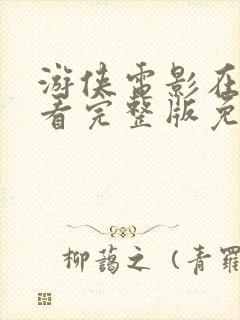 游侠电影在
看完整版免
柳蔼之（青羅